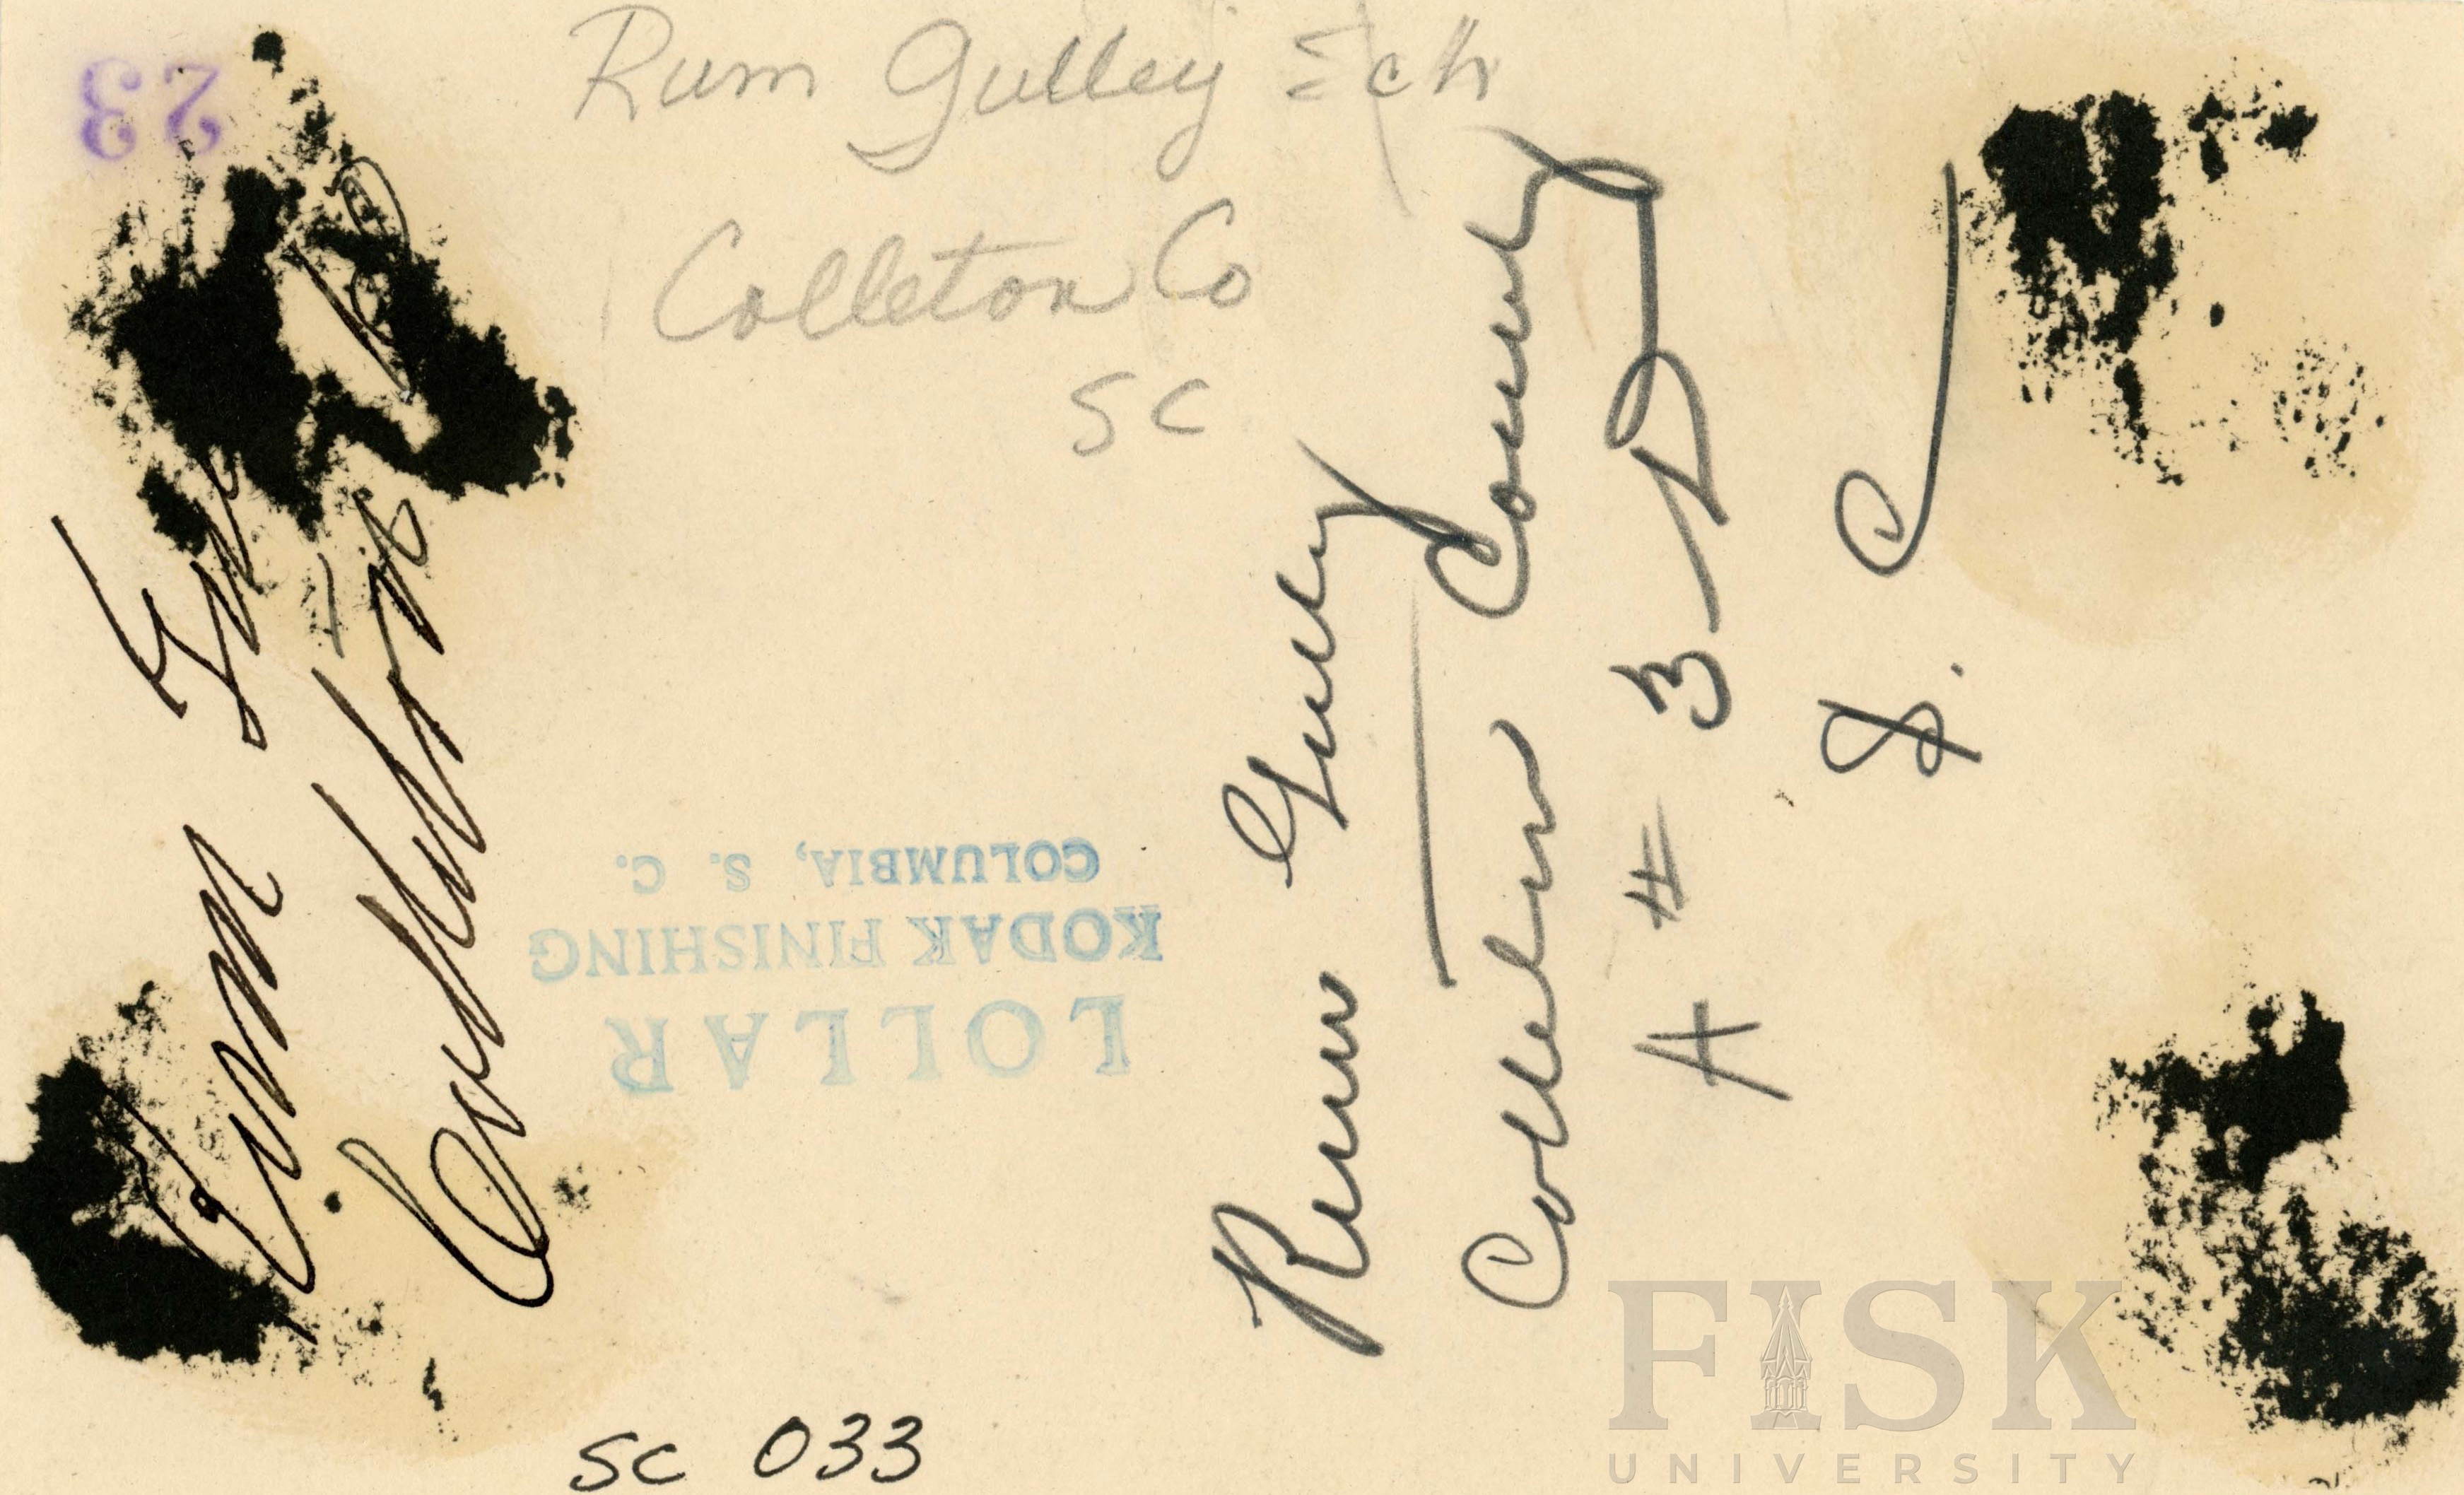 Rum Gulley Sch
Colleton Co
SC
23
Rum
Colleton
LOLLAR
KODAK FINISHING
COLUMBIA, S. C.
Rum Gully
Colleton County
A # 3
S. C
SC 033
FISK
UNIVERSITY